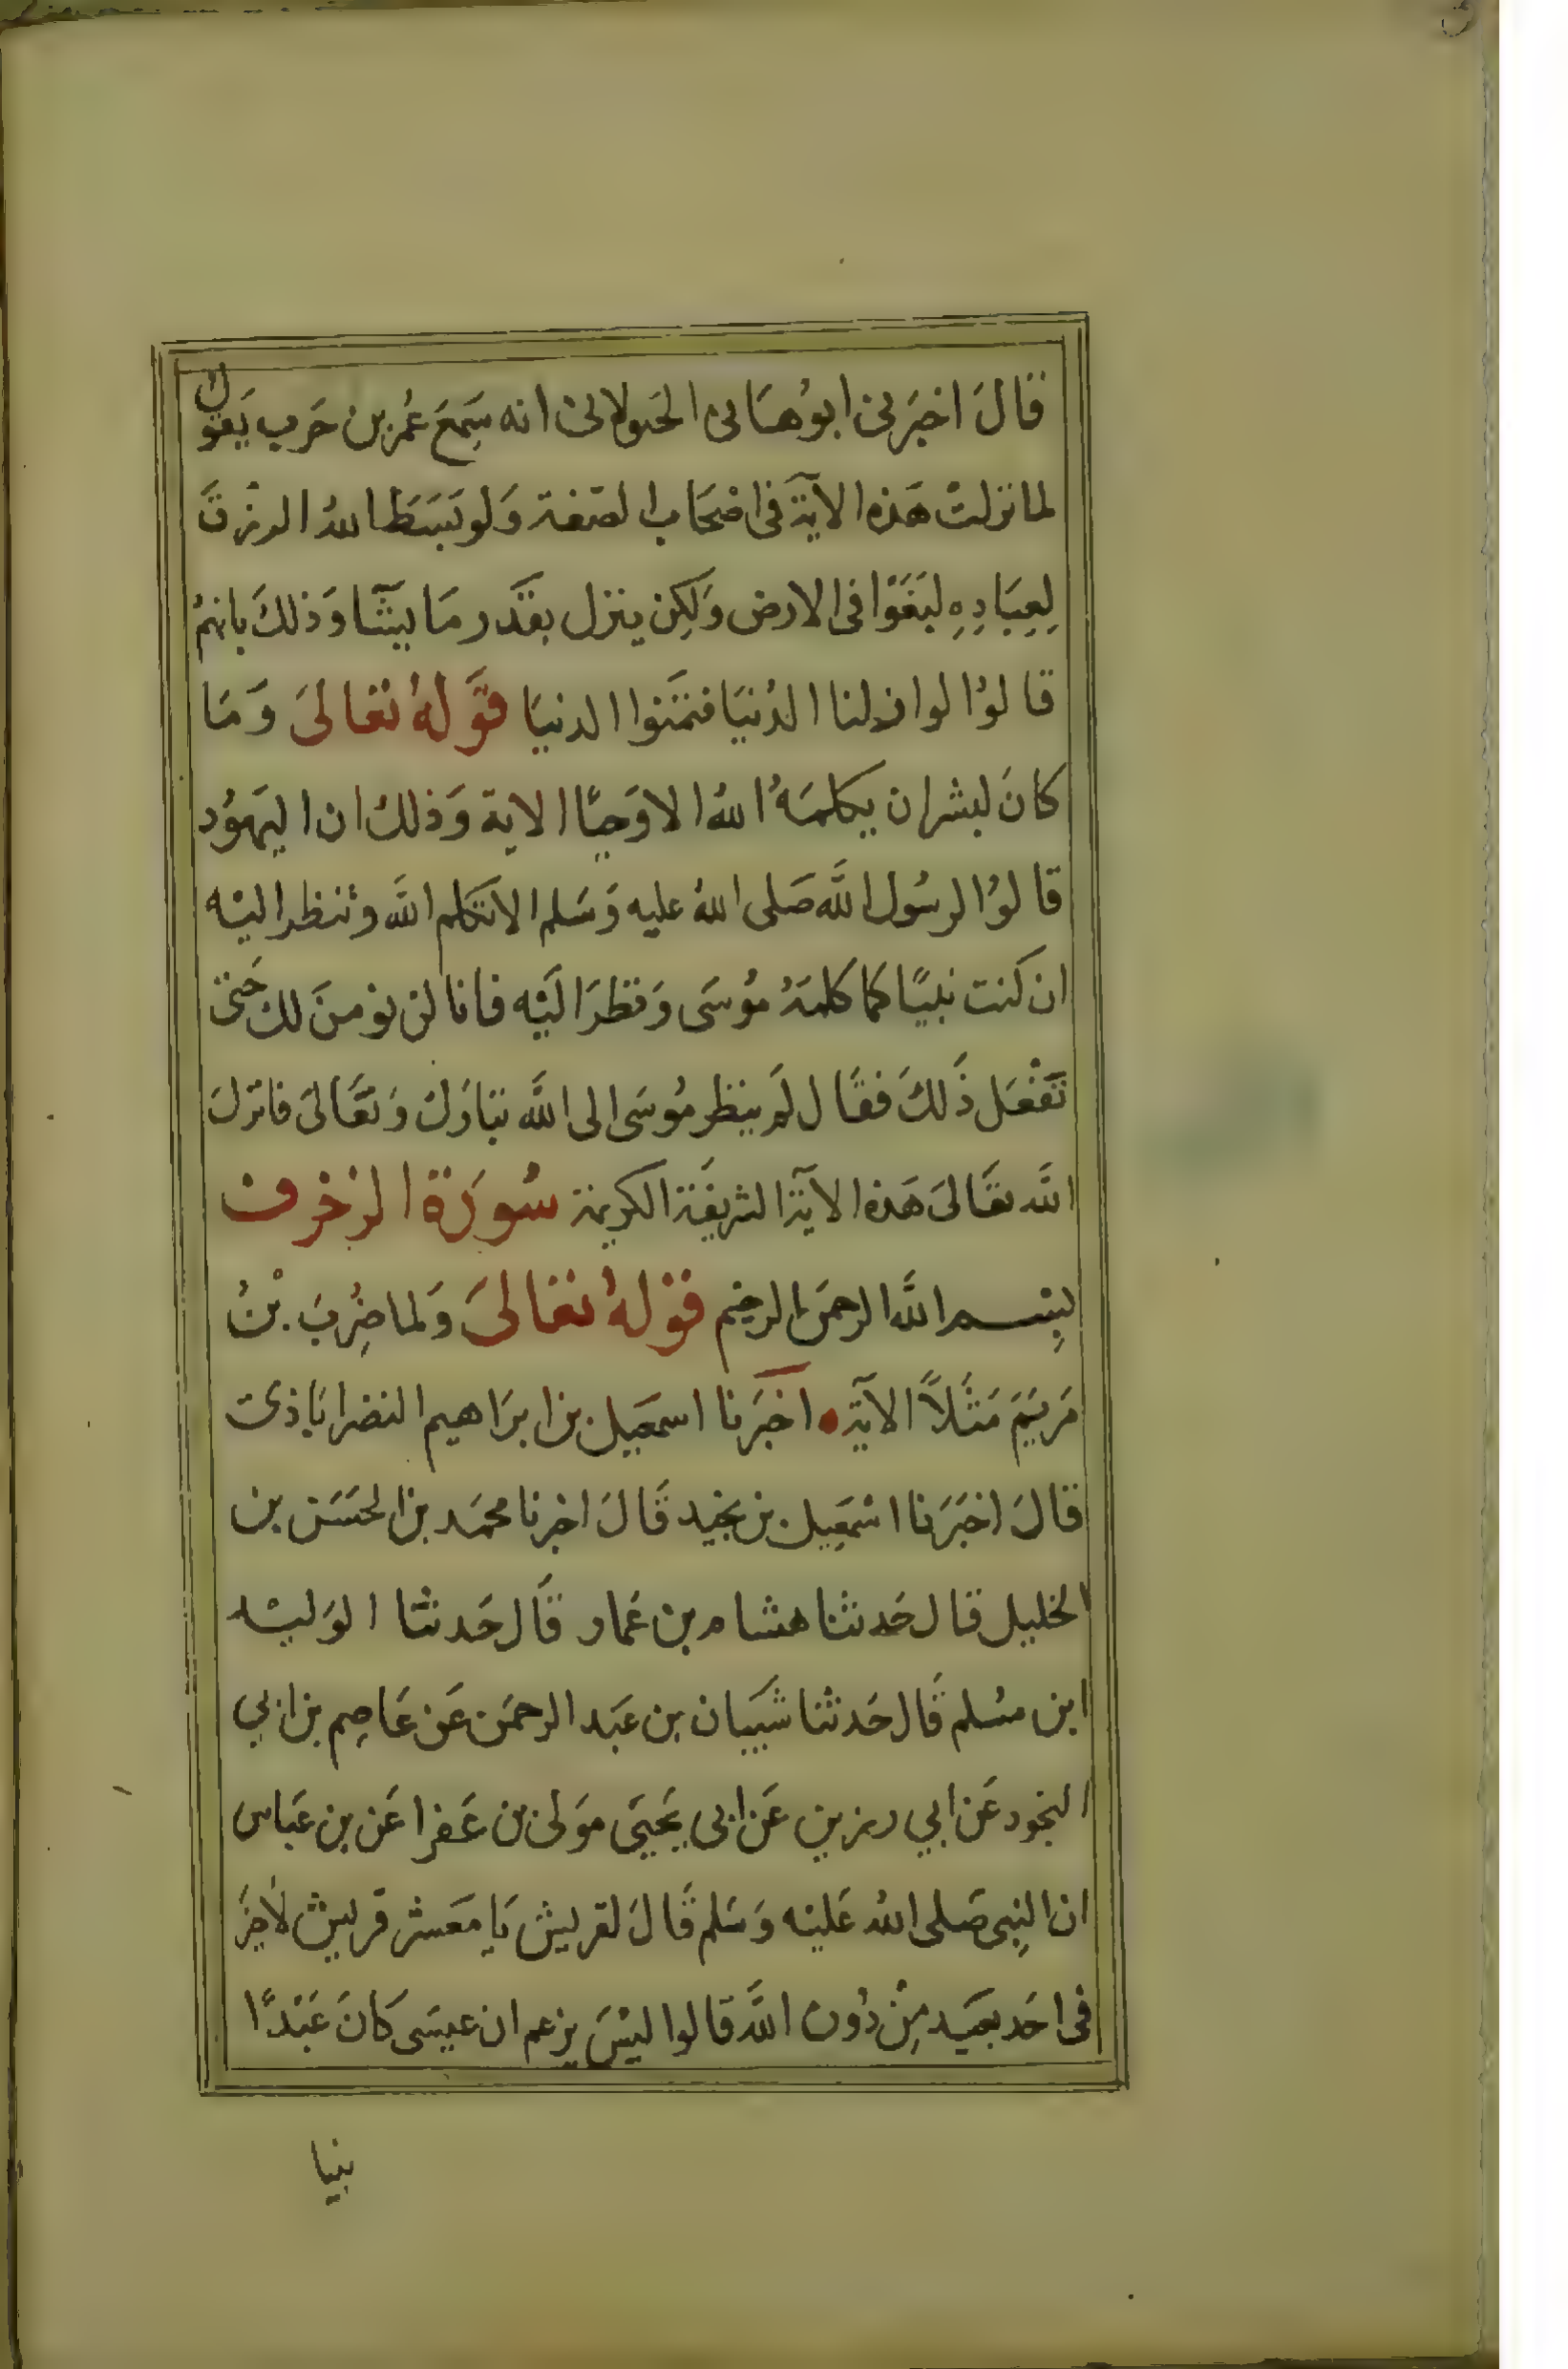 قَالَ اخبَرَنى ابوُهَانى الخولانى انه سَمِعَ عُمربن حَرب يَقول
لما نزلتْ هَذه الآيَة فى اصْحَاب الصّفة وَلو بَسَطَ اللهُ الرزق
لِعِبَادِهِ لبَغَوْا فى الارض وَلكِن ينزل بقَدَر مَا يشَآ وَذلكَ بانهمُ
قا لوُا لوا ان لنا الدُنيَا فتمَنوا الدنيَا قوَله تعَالىَ وَمَا
كانَ لبشران يكلمَهُ اللهُ الا وَحيًا الاية وَذلك ان اليَهوُد
قا لوُا لرسُول اللَّه صَلى اللهُ عليه وَسَلم الا تكلم اللَّه وتنظر اليْه
ان كنت نبيًا كما كلمَهُ موُسَى وَنظرَ اليَه فانا لن نومنَ لك حَتى
تَفْعَل ذَلكَ فقَال لَم ينظر مُوسَى الى اللَّه تبَارَك وَتعَالىَ فانزلَ
اللَّه تعَالىَ هَذه الآيَة الشريفَة الكريمة سُورَة الزخرف
بِسْم اللَّه الرحمَن الرحيم قوْلهُ تعَالىَ وَلما ضِرُبَ بْنُ
مَريَمَ مَثَلاً الآيَة • اخبَرَنا اسمعَيل بن ابرَاهيم النضرابَاذى
قالَ اخبَرَنا اسْمَعِيل بن نجيد قَالَ اخبرنا محمَد بن الحسَن بن
الخليل قال حَدثنا هشام بن عَمار قَال حَدثنا الوَليْد
ابن مسُلم قَال حَدثنا شَيبان بن عَبد الرحمَن عَن عَاصِم بن ابي
النجود عَن ابي رزين عَن ابى يَحيَى موَلى بن عَفرا عَن بن عَباس
ان النِبى صَلى اللهُ عَليْه وَسَلم قَالَ لقريش يَا مَعَشر قريش لاَ خيرَ
فى احَد يعبَد مِنْ دُون اللَّه قالوا ليْسَ يزعم ان عيسَى كَانَ عَبْدًا
نبيا